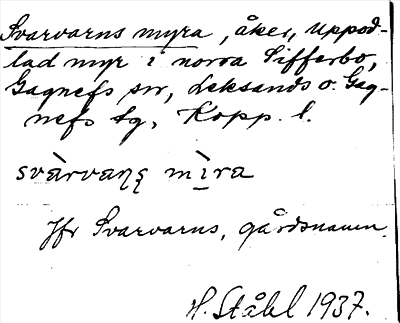 Svarvarns myra, åker, uppod-
lad myr i norra Sifferbo,
Gagnefs sn, Leksands o. Gag-
nefs tg, Kopp. l.
svàrvaṇs̨ mìra
Jfr Svarvarns, gårdsnamn.
H. Ståhl 1937.